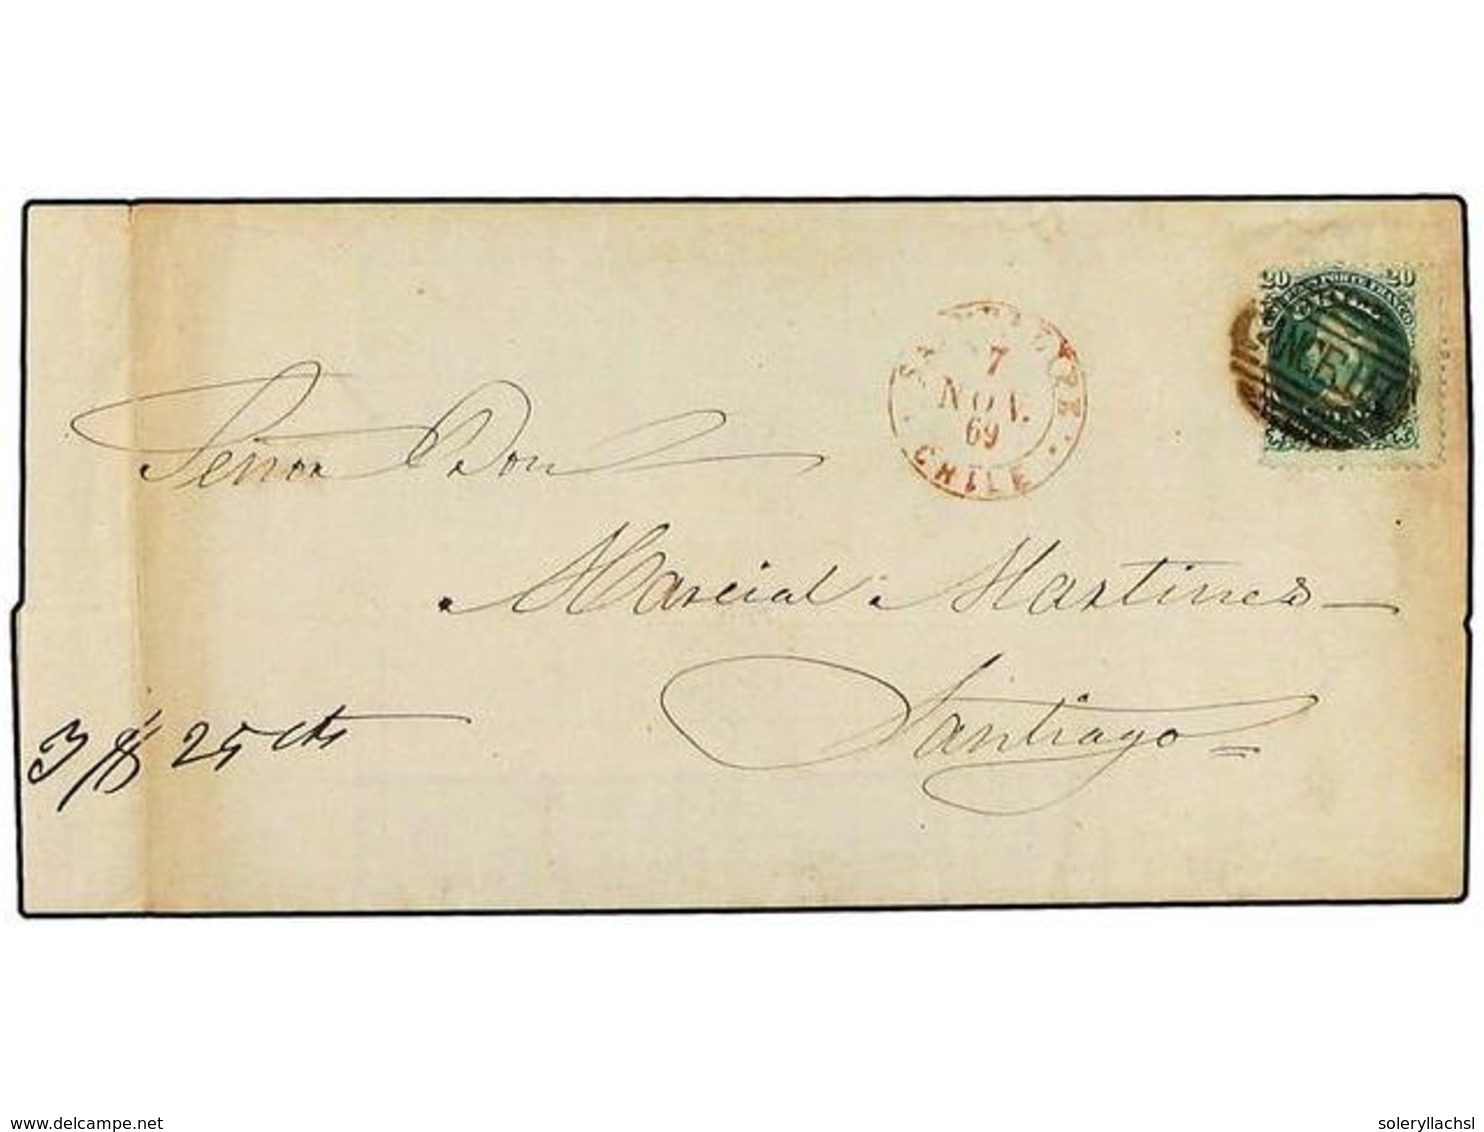 20 PORTE FRANCO 20
7
NOV.
69
CHILE
Señor Don
Marcial Martines
Santiago
3 $ 25 cts
delcampe.net
soleryllachsl